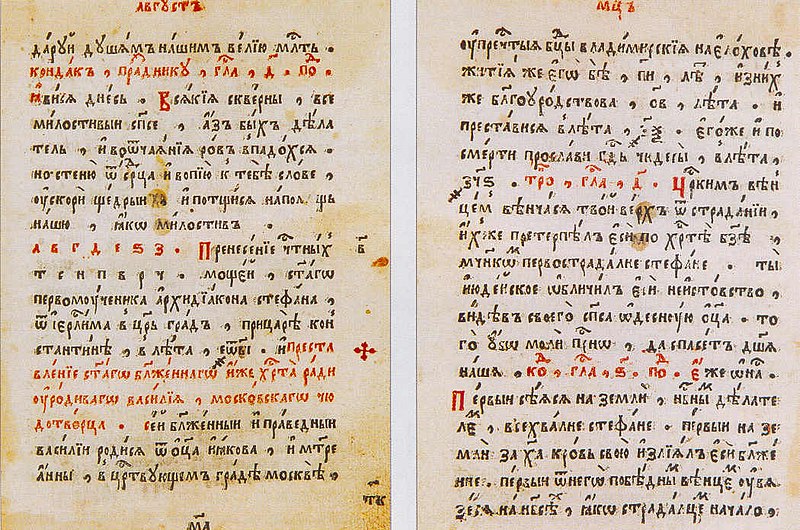 АВГУСТЪ
даруи душамъ нашимъ велїю млть .
кондакъ , праднику , гла , д . по .
ꙗвися днесь . Всякїя скверны , все
милостивыи спсе , азъ быхъ дѣла
тель , и ѿчаянїя ровъ впадохся .
но стеню ѿ срца и вопїю к тебѣ слове ,
ускори щедрыи и потщися на пол
нашю , ꙗко милостивъ .
А В Г Д Е Ѕ З . Пренесенїе чтныхъ
т с и п в р ч . мощеи , стаго
первомученика архидїакона стефана ,
ѿ їерлима в црь градъ , при царѣ кон
стантинѣ , в лѣта , . и преста
вленїе стаго блаженнаго иже хрта ради
уродиваго василїя , московскаго чю
дотворца . сеи блаженныи и праведныи
василїи родися ѿ оца иꙗкова , и мтре
анны , в црствующемъ градѣ москвѣ ,
мца
у пречтыя бцы владимирскїя на елоховѣ .
житїя же его бѣ , пи , лѣ , изних
же блгоуродствова , ов , лѣта . и
преставися в лѣта , . егоже и по
смерти прослави гдь чюдесы , в лѣта ,
зчѕ . тро , гла , д . Цркимъ вѣн
цемъ вѣнчася твои верхъ ѿ страданїи ,
ихже претерпѣлъ еси по хртѣ бзѣ ,
мчнко первострадалне стефане . ты
июдейское обличилъ еси неистовство ,
видѣвъ своего спса одесную оца . то
го убо моли присно , да спасетъ дша
наша , ко , гла , ѕ . по . еже о на .
Первыи сѣяся на земли , нбныи дѣлате
ле , всехвалне стефане . первыи на зе
мли за ха кровь свою излїялъ еси блаже
нне . первыи ѿ него побѣдны вѣнце увя
зеся на нбсѣ , ꙗко страдалце начало ,